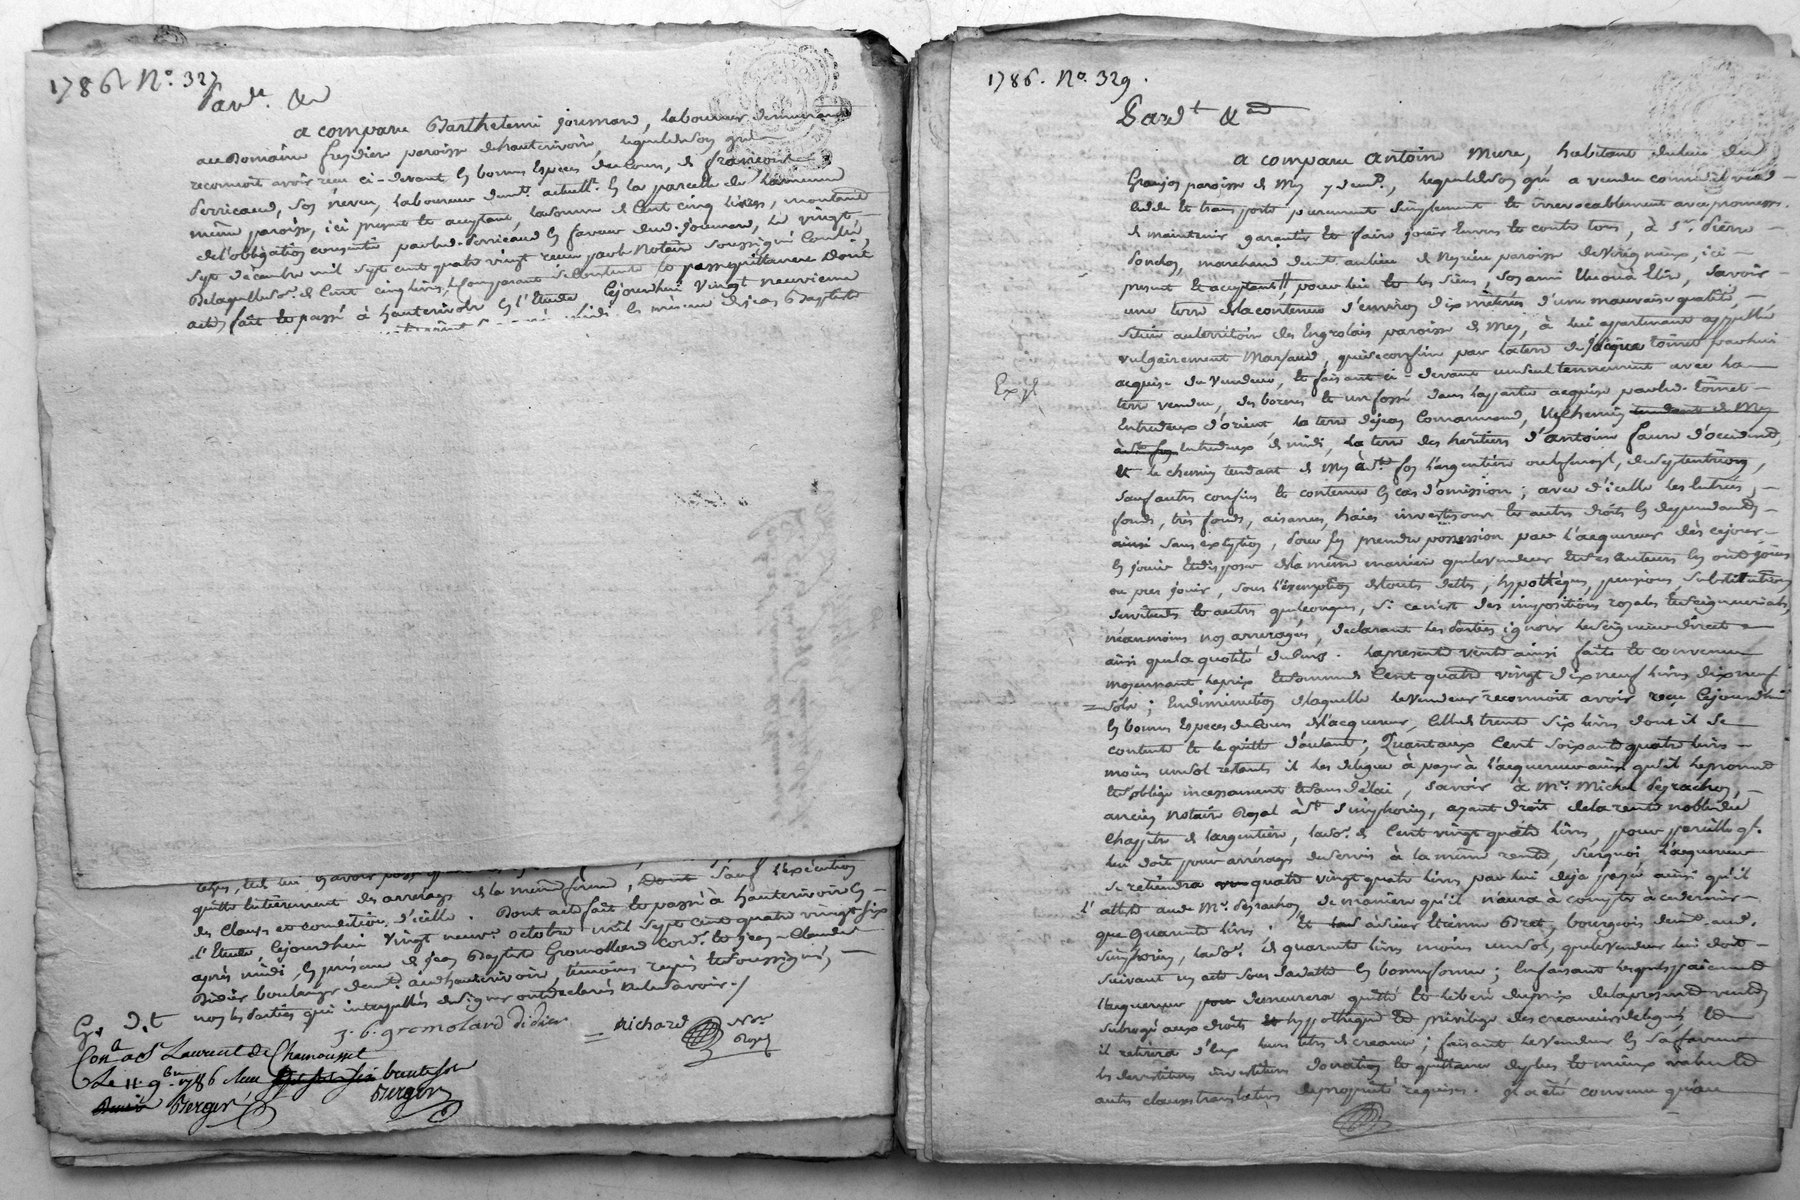 1786 N° 327
Pardt &a
a comparu Barthelemi joumard, laboureur demeurant
au Domaine fregdier paroisse de hauterivoir, lequel de son gré
reconnoit avoir reçu ci-devant en bonnes especes du Cours, de françois
Perricaud, son neveu, laboureur demt actuellt en la parcelle du
même paroisse, ici present et acceptant, la somme de Cent cinq livres, montant
de l'obligation consentie par led. Perricaud en faveur dud. joumard, le vingt-
sept décembre mil sept cent quatre vingt reçue par le Notaire soussigné Contlé,
De laquelle so. de Cent cinq livres, le comparant se contente et passe quittance Dont
acte, fait et passé à hauterivoir en l'Etude, Cejourdhui vingt neuvieme
en présence de jean Baptiste
quitte entièrement des arrérages de la même ferme, Dont sauf l'exécution
des clauses et condition d'icelle. Dont acte fait et passé à hauterivoir en
l'Etude, Cejourdhui vingt neuve. octobre mil sept cent quatre vingt six
après midi, en présence de jean Baptiste Gromollard Cordr. et jean-Claude
Didier boulanger demt. aud hauterivoir, témoins requis et soussignés,
non les parties qui interpellées de signer ont déclaré ne le savoir./
j. b. gromolard didier = richard Nre Royal
G. D. t
Conlé à St Laurent de Chamousset
Le 11 9bre 1786 Reçu trente sols
Berger Berger
1786. N° 329.
Pardt &a
a comparu antoine Mure, habitant du lieu du
Granjon paroisse de Mey y demt., lequel de son gré a vendu comme il vend
cede et transporte purement simplement et irrévocablement avec promesse
de maintenir garantir et faire jouir envers et contre tous, à Sr. Pierre
Poncet, marchand demt. au lieu de Neyrieu paroisse de Virigneux, ici
present et acceptant, pour lui et les siens, son ami élu ou à élire, savoir
une terre de la contenue d'environ dix mètres d'une mauvaise qualité,
située au territoire des Engrolais paroisse de Mey, à lui appartenant appellée
vulgairement Marsaud, qui se confine par la terre de jacques tomet par lui
acquise du vendeur, et faisant ci-devant un seul tennement avec la
Expé
terre vendue, des bornes et un fossé dans la partie acquise par led. tomet
entredeux d'orient, la terre de jean Comarmond, un chemin tendant de Mey
entredeux de midi, la terre des héritiers d'antoine faure d'occident,
et le chemin tendant de Mey à Ste foy l'argentière de septentrion,
sauf autres confins et contenue en cas d'omission; avec d'icelle les entrées,
fonds, très fonds, aisances, haies investisons et autres droits en dependants
ainsi sans exception, Pour en prendre possession par l'acquereur dès cejour
en jouir et disposer de la même manière que le vendeur et ses auteurs en ont joui
ou pres jouir, sous l'exemption de toutes dettes, hypothèques, pensions, substitutions
servitudes et autres quelconques, si ce n'est des impositions royales et seigneuriales,
néanmoins nos arrerages, déclarant les parties ignorer le seigneur direct
ainsi que la quotité du Cens. La presente vente ainsi faite et convenue
moyennant le prix et somme de Cent quatre vingt dix neuf livres dix neuf
sols; En diminution de laquelle le vendeur reconnoit avoir reçu Cejourdhui
en bonnes especes du Cours de l'acquereur, Celle de trente six livres dont il se
contente et le quitte d'autant; Quant aux Cent soixante quatre livres
moins un sol restants il les délègue à payer à l'acquereur ainsi qu'il le promet
et s'oblige incessament et sans délai, savoir à Me. Michel Peyrachon,
ancien Notaire Royal à St simphorien, ayant droit de la rente noble du
Chapitre de largentière, la so. de Cent vingt quatre livres, pour pareille qe.
lui doit pour arrérages de servis à la même rente, surquoi l'acquereur
se retiendra quatre vingt quatre livres par lui deja payée ainsi qu'il
l'atteste aud Me. Peyrachon, de manière qu'il n'aura à compter à ce dernier
que quarante livres. Et à sieur Etienne Bret, bourgeois demt. aud.
simphorien, la so. de quarante livres moins un sol, que le vendeur lui doit
suivant un acte sous sa datte en bonne forme; En faisant lesquels paiements
l'acquereur demeurera quitte et libéré du prix de la presente vente
subrogé aux droits hypothèque et privilège des creanciers délégués et
il retirera d'eux leurs titres de creance; faisant le vendeur en sa faveur
les devestitures investitures donation et quittance de plus et mieux value et
autres clauses translatives de propriété requises. il a été convenu qu'au